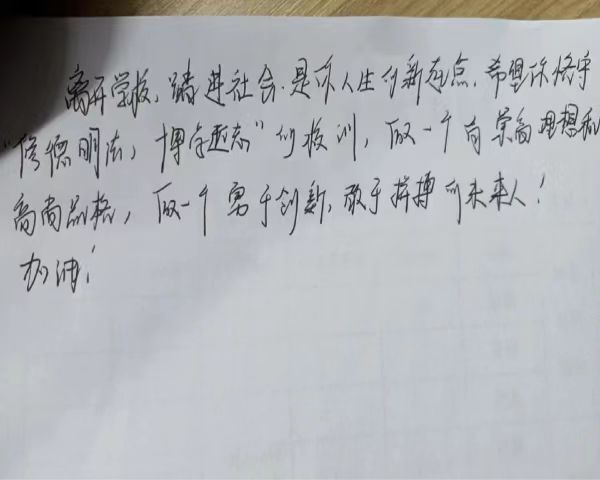 离开学校，踏进社会.是你人生的新起点.希望你恪守
"修德明法，博学笃志"的校训，做一个有崇高理想和
高尚品格，做一个勇于创新，敢于拼搏的未来人！
加油！